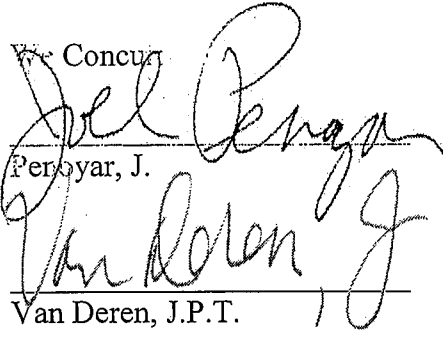 We Concur:
Joel Penoyar
Penoyar, J.
Van Deren, J
Van Deren, J.P.T.